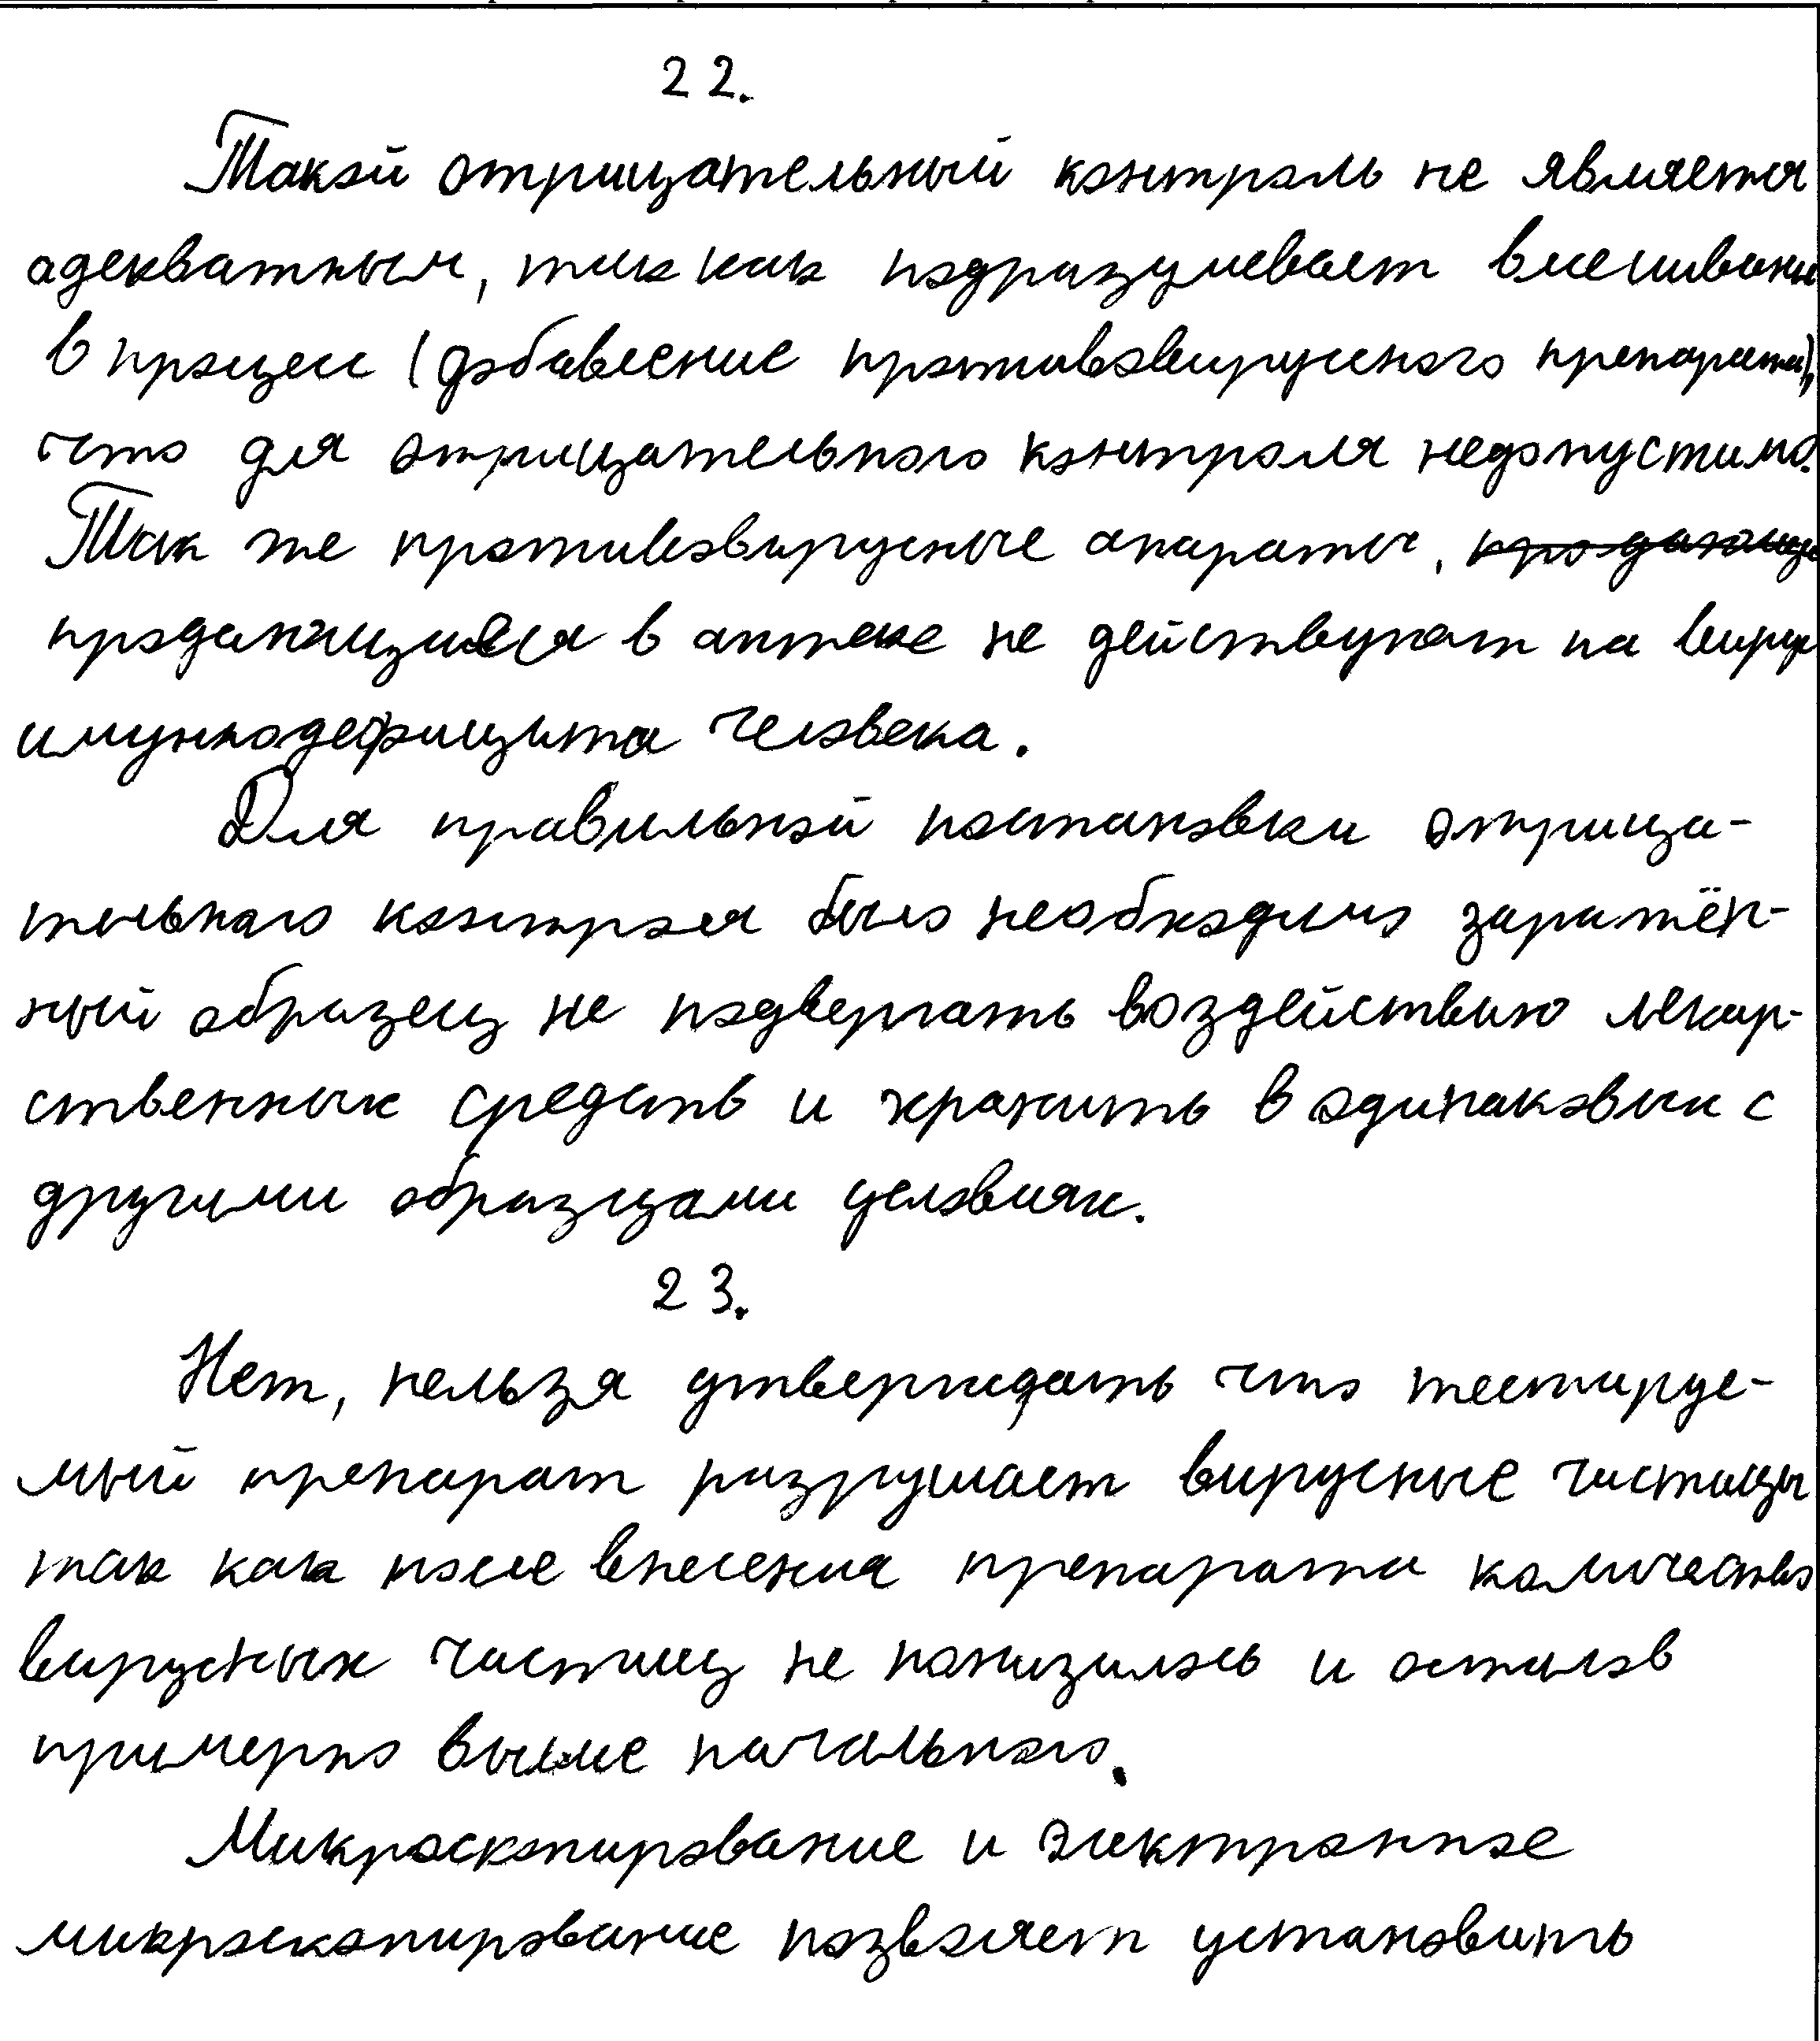 22.
Такой отрицательный контроль не является
адекватным, так как подразумевает вмешивание
в процесс (добавление противовирусного препарата),
что для отрицательного контроля недопустимо.
Так же противовирусные апараты,
продающиеся в аптеке не действуют на вирус
имуннодефицита человека.
Для правильной постановки отрица-
тельного контроля было необходимо заражён-
ный образец не подвергать воздействию лекар-
ственных средств и хранить в одинаковых с
другими образцами условиях.
23.
Нет, нельзя утверждать что тестируе-
мый препарат разрушает вирусные частицы
так как после внесения препарата количество
вирусных частиц не понизилось и
примерно выше начального.
Микроскопирование и электронное
микроскопирование позволяет установить